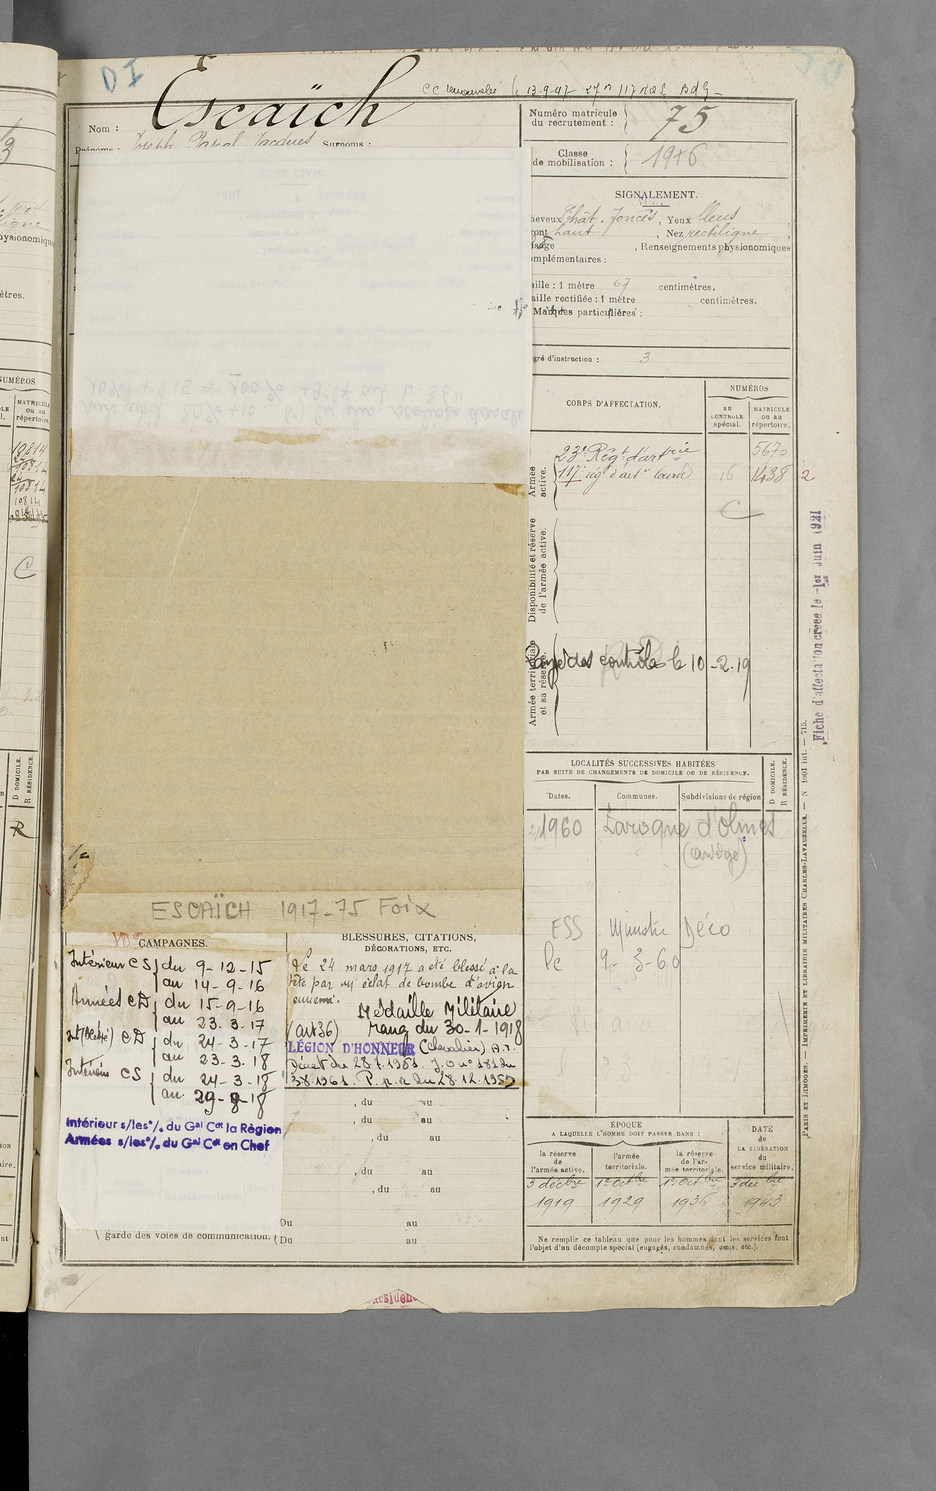 DI
Escaïch
Nom :
Prénoms : Joseph Pascal Jacques Surnoms :
Numéro matricule
du recrutement : 75
Classe
de mobilisation : 1916
SIGNALEMENT.
heveux Chât. foncés, Yeux bleus
ront haut , Nez rectiligne ,
isage , Renseignements physionomiques
omplémentaires :
aille : 1 mètre 67 centimètres.
aille rectifiée : 1 mètre centimètres.
Marques particulières :
gré d'instruction : 3
CORPS D'AFFECTATION.
NUMÉROS
AU
CONTRÔLE
spécial.
MATRICULE
OU AU
répertoire.
Armée
active.
23e Régt d'artrie 5670
117e régt d'artie lourde 16 1438 2
C
Disponibilité et réserve
de l'armée active.
Armée territoriale
et sa réserve.
Rayé des contrôles le 10-2-19
Fiche d'affectation créée le 1er Juin 1921
LOCALITÉS SUCCESSIVES HABITÉES
PAR SUITE DE CHANGEMENTS DE DOMICILE OU DE RÉSIDENCE.
Dates.
Communes.
Subdivisions de région
D DOMICILE.
R RÉSIDENCE.
1960 Laroque d'Olmes
(ariège)
ESS Ministre Déco
le 9-3-60
ESCAÏCH 1917-75 Foix
CAMPAGNES.
Intérieur CS du 9-12-15
au 14-9-16
Armées CD du 15-9-16
au 23-3-17
CD du 24-3-17
au 23-3-18
Intérieur CS du 24-3-18
au 29-8-18
Intérieur s/les % du Gal Cdt la Règion
Armées s/les % du Gal Cdt en Chef
BLESSURES, CITATIONS,
DÉCORATIONS, ETC.
Le 24 mars 1917 a été blessé à la
tête par un éclat de bombe d'avion
ennemi.
Médaille Militaire
(art 36) rang du 30-1-1918
LÉGION D'HONNEUR (Chevalier)
Décret du
P. p. r du 28.12.1952
, du au
, du au
, du au
, du au
, du au
Du au
garde des voies de communication. ( Du au
ÉPOQUE
A LAQUELLE L'HOMME DOIT PASSER DANS :
DATE
de
LA LIBÉRATION
du
service militaire.
la réserve
de
l'armée active.
l'armée
territoriale.
la réserve
de l'ar-
mée territoriale.
3 décbre 1er octbre 1er octbre 3 décbre
1919 1929 1936 1943
Ne remplir ce tableau que pour les hommes dont les services font
l'objet d'un décompte spécial (engagés, condamnés, omis, etc.).
PARIS ET LIMOGES. — IMPRIMERIE ET LIBRAIRIE MILITAIRES CHARLES-LAVAUZELLE. — N 1601 int. — 715.
NUMÉROS
MATRICULE
ou au
répertoire.
10814
10814
10814
C
D DOMICILE.
R RÉSIDENCE.
R